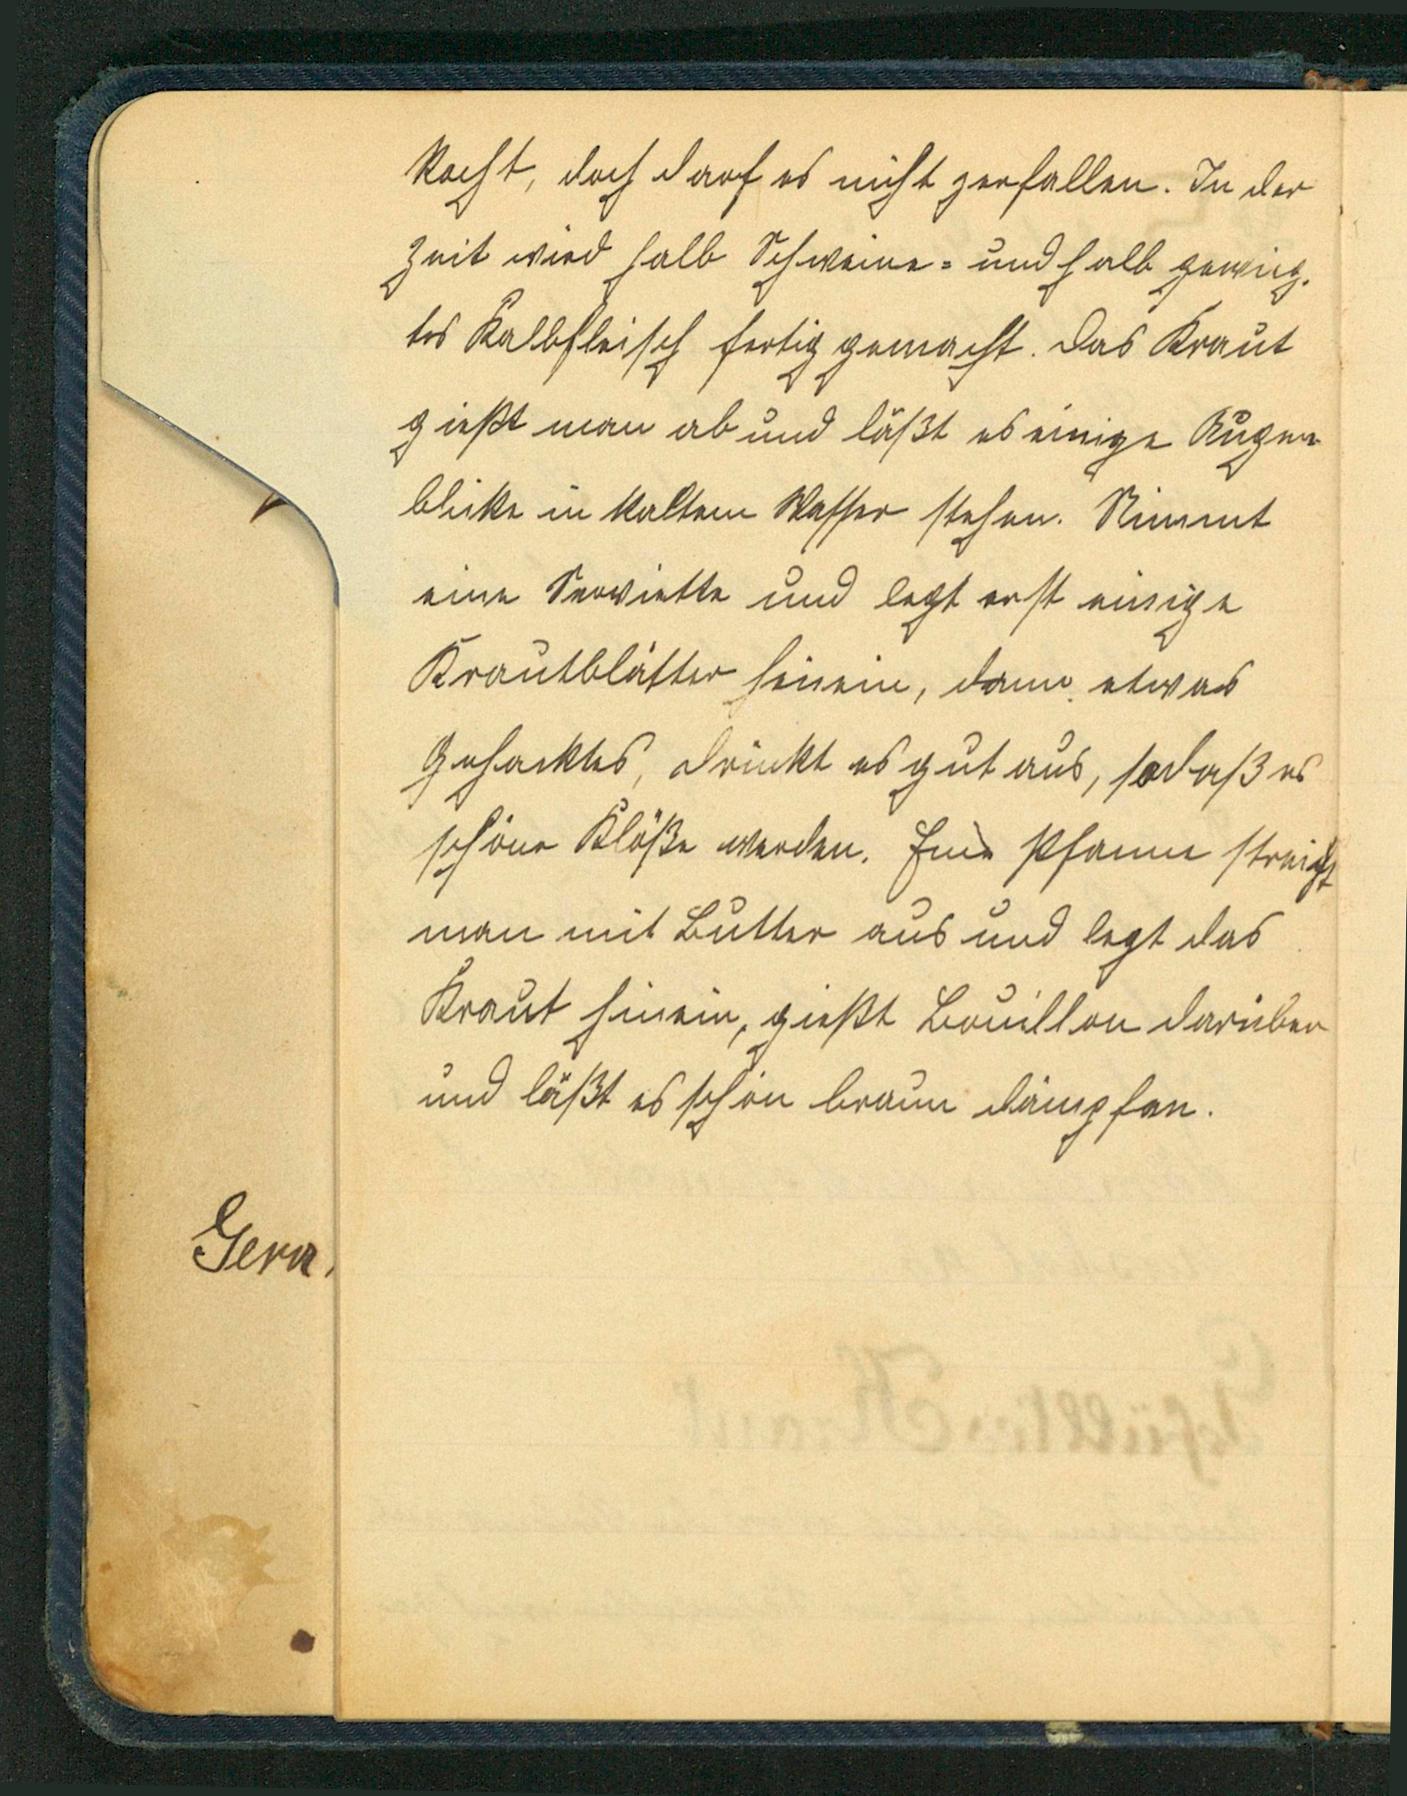 kocht, doch darf es nicht zerfallen. In der
Zeit wird halb Schweine= und halb gewieg.
tes Kalbfleisch fertig gemacht. Das Kraut
gießt man ab und läßt es einige Augen
blicke in kaltem Wasser stehen. Nimmt
eine Serviette und legt erst einige
Krautblätter hinein, dann etwas
Gehacktes, drückt es gut aus, sodaß es
schöne Klöße werden. Eine Pfanne streicht
man mit Butter aus und legt das
Kraut hinein, gießt Bouillon darüber
und läßt es schön braun dämpfen.
Gera,